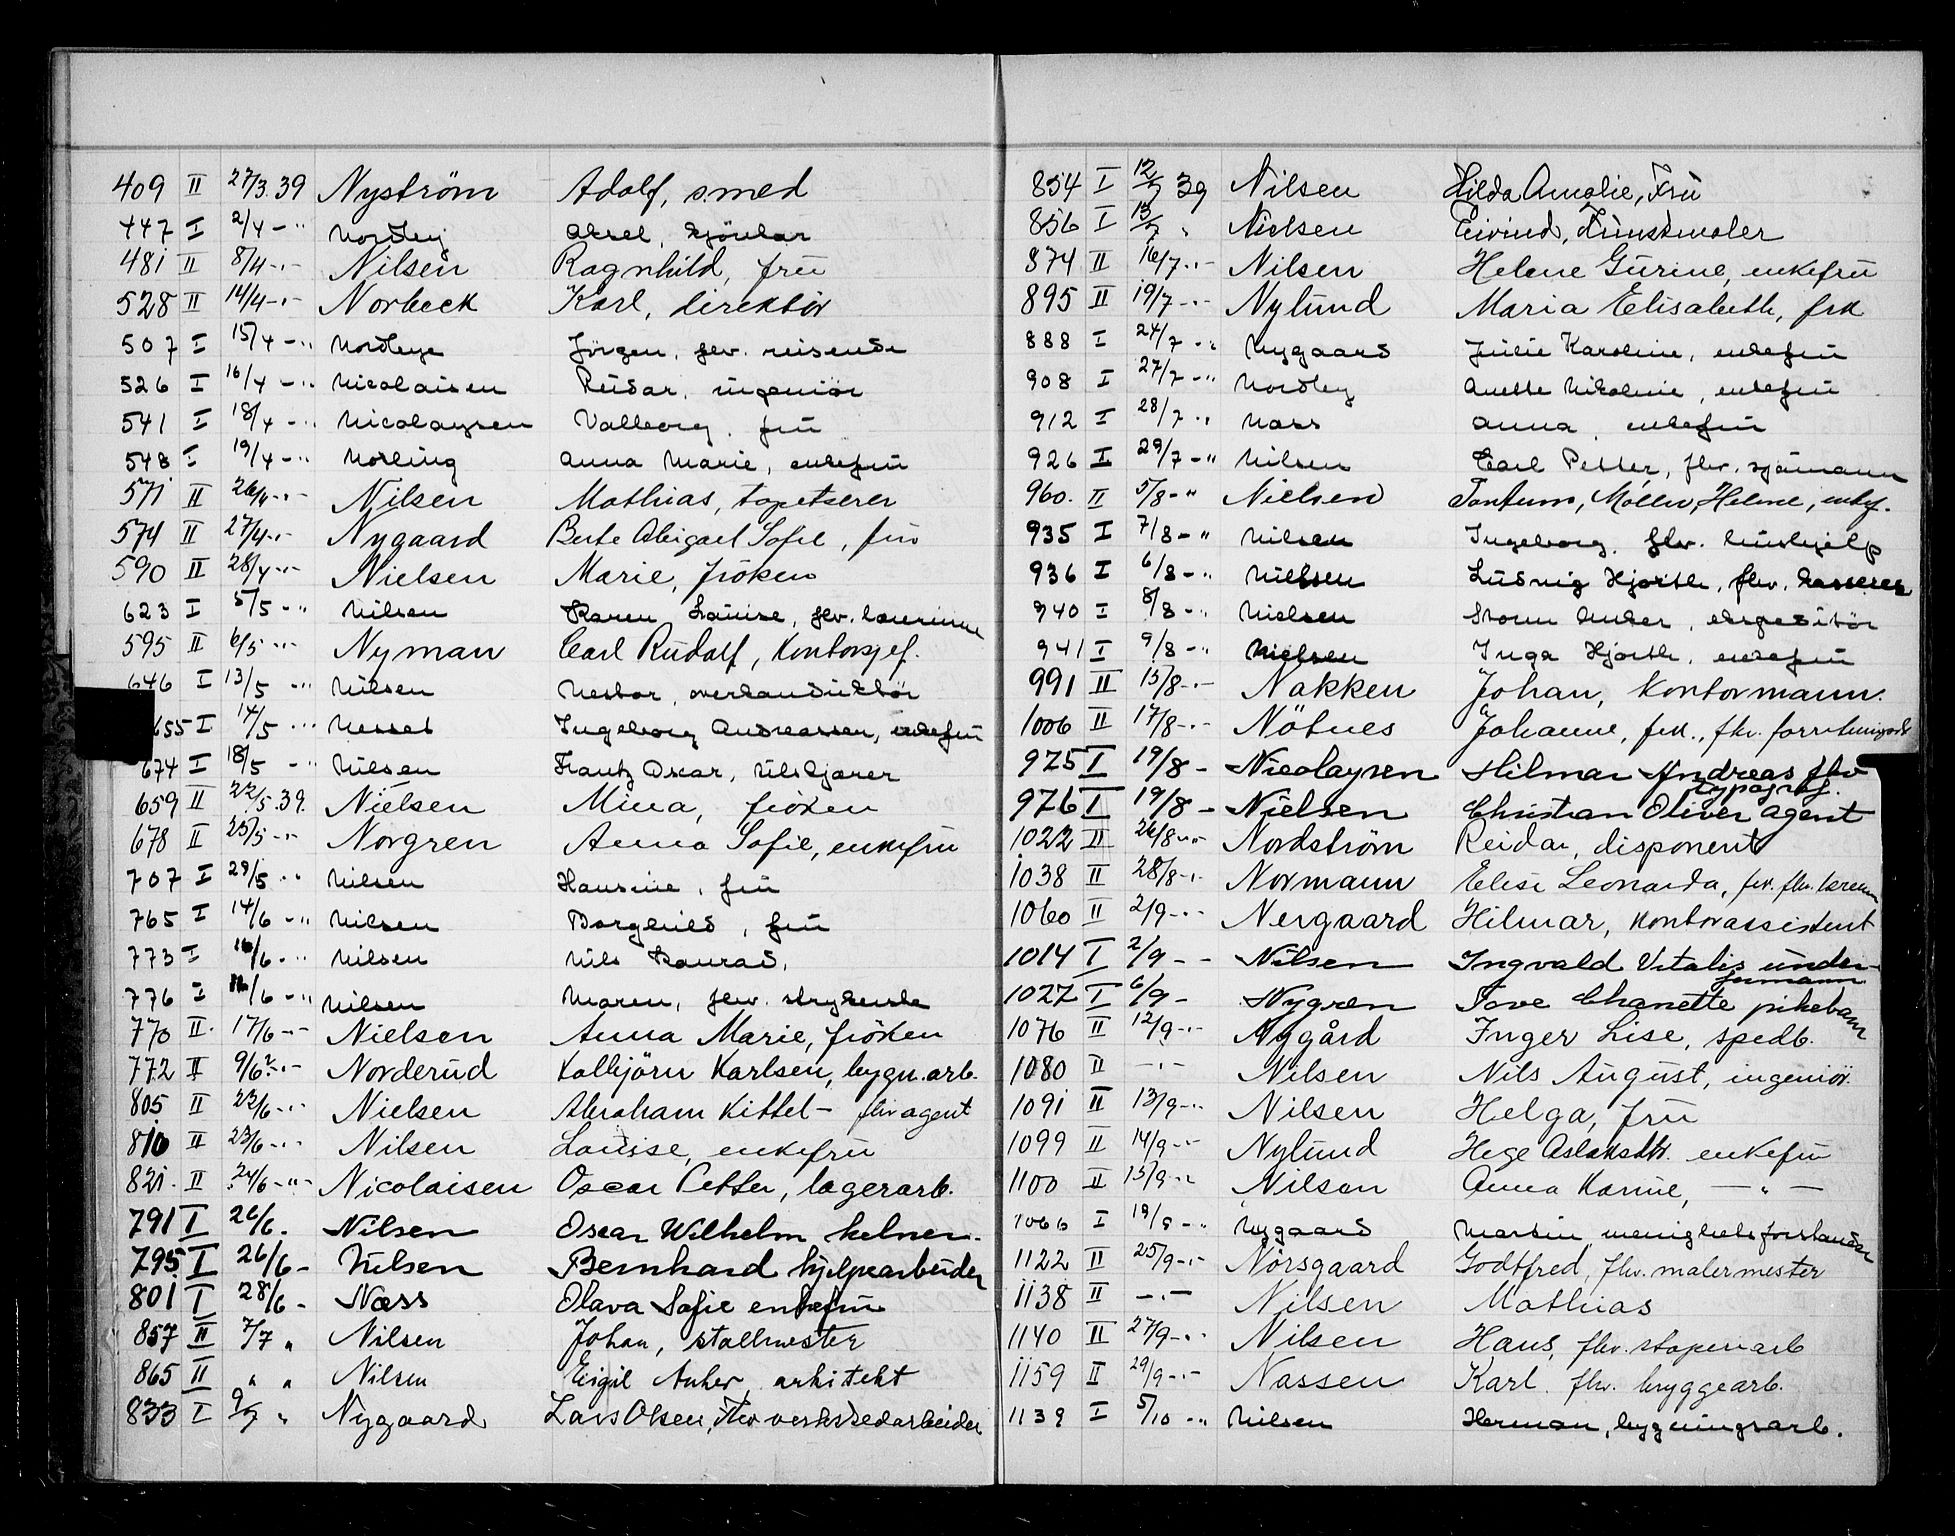 409 II 27/3.39 Nyström Adolf, smed
447 I 2/4 -"- Nordley Aksel, kjöulor
481 II 8/4 -"- Nilsen Ragnhild, fru
528 II 14/4 -"- Norbeck Karl, direktör
507 I 15/4 -"- Nordbye Jörgen, flv. reisende
526 I 16/4 -"- Nicolaisen Reidar, ingeniör
541 I 18/4 -"- Nicolaysen Valborg, fru
548 I 19/4 -"- Norling Anna Marie, enkefru
571 II 26/4 -"- Nilsen Mathias, tapetserer
574 II 27/4 -"- Nygaard Berte Abigael Sofie, fru
590 II 28/4 -"- Nielsen Marie, fröken
623 I 5/5 -"- Nilsen Karen Louise, flv. lærerinne
595 II 6/5 -"- Nyman Carl Rudolf, Kontorsjef.
646 I 13/5 -"- Nilsen Nestor, overkonduktör
655 I 14/5 -"- Nesset Ingeborg Andreassen, enkefru
674 I 18/5 -"- Nilsen Frantz Oscar, filskjærer
659 II 22/5.39. Nielsen Mina, fröken
678 II 25/5 -"- Norgren Anna Sofie, enkefru
707 I 29/5 -"- Nilsen Hansine, fru
765 I 14/6 -"- Nilsen Borghild, fru
773 I 16/6 -"- Nilsen Nils Konrad,
776 I 16/6 -"- Nilsen Maren, flv. strykerske
770 II. 17/6 -"- Nielsen Anna Marie, fröken
772 II 9/6? -"- Norderud Kolbjörn Karlsen, bygn.arb.
805 II 22/6 -"- Nielsen Abraham Kittel - flv agent
810 II 23/6 -"- Nilsen Louise, enkefru
821. II 24/6 -"- Nicolaisen Oscar Petter, lagerarb.
791 I 26/6. Nilsen Oscar Wilhelm kelner.
795 I 26/6 - Nilsen Bernhard hjelpearbeider
801 I 28/6 - Næss Olava Sofie enkefru
857 II 7/7 " Nilsen Johan, stallmester
865 II " " Nilsen Eigil Anker, arkitekt
833 I 9/7 " Nygaard Lars Olsen, Flv verkstedarbeider
854 I 12/7 39 Nilsen Hilda Amalie, Fru
856 I 13/7 " Nielsen Eivind, Kunstmaler
874 II 16/7 -"- Nilsen Helene Gurine, enkefru
895 II 19/7 -"- Nylund Maria Elisabeth, frk
888 I 24/7 -"- Nygaard Julie Karoline, enkefru
908 I 27/7 -"- Nordby Anette Nikoline, enkefru
912 I 28/7 -"- Næss Anna, enkefru
926 I 29/7 -"- Nilsen Carl Petter, flv. sjömann
960. II 5/8 -"- Nielsen Tantum, Møller, Helene, enkef.
935 I 7/8 -"- Nilsen Ingeborg, flv. hushjelp
936 I 6/8 -"- Nielsen Ludvig Hjorth, flv. kasserer
940 I 8/8 -"- Nielsen Storm Anker, ekspeditör
941 I 9/8 -"- Nielsen Inga Hjorth, enkefru
991 II 15/8 -"- Nakken Johan, Kontormann.
1006 II 17/8 -"- Nötnes Johanne, frk., fhv.
975 I 19/8 - Nicolaysen Hilmar Andreas flv
typograf.
976 I 19/8 - Nielsen Christian Oliver agent
1022 II 26/8 -"- Nordström Reidar, disponent
1038 II 28/8 -"- Normann Elise Leonarda, frk. flv. lærerinne
1060 II 2/9 -"- Nergaard Hilmar, kontorassistent
1014 I 2/9 - - Nilsen Ingvald Vitalis under-
formann
1027 I 6/9 - Nygren Tove Chanette pikebarn
1076 II 12/9 -"- Nygård Inger Lise, spedb.
1080 II -"- Nilsen Nils August, ingeniör.
1091 II 13/9 -"- Nilsen Helga, fru
1099 II 14/9 -"- Nylund Hege Aslaksdtr. enkefru
1100 II 15/9 -"- Nilsen Anna Karine, — " —
1066 I 19/9 -"- Nygaard Martin, menighetsforstander
1122 II 25/9 -"- Norsgaard Godtfred, fhv. malermester
1138 II -"- Nilsen Mathias
1140 II 27/9 -"- Nilsen Hans, flv. stoperiarb
1159 II 29/9 -"- Nassen Karl. fhv. bryggearb.
1139 I 5/10 -"- Nilsen Herman, bygningsarb.